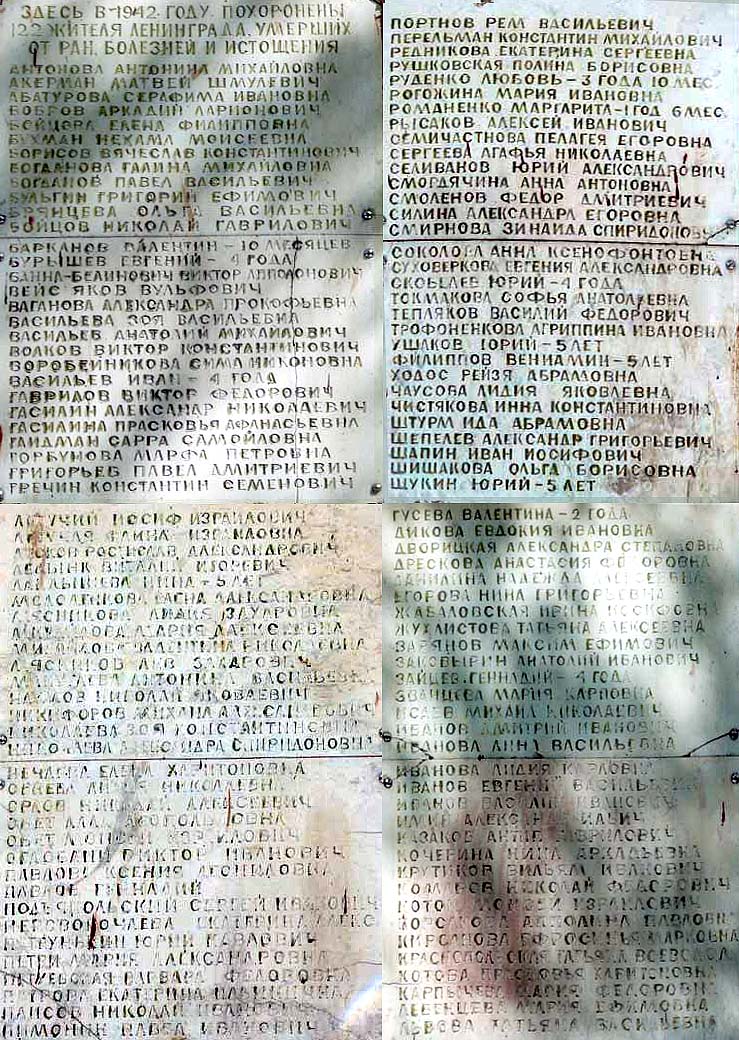 ЗДЕСЬ В 1942 ГОДУ ПОХОРОНЕНЫ
122 ЖИТЕЛЯ ЛЕНИНГРАДА, УМЕРШИХ
ОТ РАН, БОЛЕЗНЕЙ И ИСТОЩЕНИЯ
АНТОНОВА АНТОНИНА МИХАЙЛОВНА
АКЕРМАН МАТВЕЙ ШМУЛЕВИЧ
АБАТУРОВА СЕРАФИМА ИВАНОВНА
БОБРОВ АРКАДИЙ ЛАРИОНОВИЧ
БОЙЦОВА ЕЛЕНА ФИЛИППОВНА
БУХМАН НЕХАМА МОИСЕЕВНА
БОРИСОВ ВЯЧЕСЛАВ КОНСТАНТИНОВИЧ
БОГДАНОВА ГАЛИНА МИХАЙЛОВНА
БОГДАНОВ ПАВЕЛ ВАСИЛЬЕВИЧ
БУЛЫГИН ГРИГОРИЙ ЕФИМОВИЧ
БРЯНЦЕВА ОЛЬГА ВАСИЛЬЕВНА
БОЙЦОВ НИКОЛАЙ ГАВРИЛОВИЧ
БАРКАНОВ ВАЛЕНТИН - 10 МЕСЯЦЕВ
БУРЫШЕВ ЕВГЕНИЙ - 4 ГОДА
ВАННА-БЕЛИНОВИЧ ВИКТОР АППОЛОНОВИЧ
ВЕЙС ЯКОВ ВУЛЬФОВИЧ
ВАГАНОВА АЛЕКСАНДРА ПРОКОФЬЕВНА
ВАСИЛЬЕВА ЗОЯ ВАСИЛЬЕВНА
ВАСИЛЬЕВ АНАТОЛИЙ МИХАЙЛОВИЧ
ВОЛКОВ ВИКТОР КОНСТАНТИНОВИЧ
ВОРОБЕЙНИКОВА СИМА НИКОНОВНА
ВАСИЛЬЕВ ИВАН - 4 ГОДА
ГАВРИЛОВ ВИКТОР ФЕДОРОВИЧ
ГАСИЛИН АЛЕКСАНДР НИКОЛАЕВИЧ
ГАСИЛИНА ПРАСКОВЬЯ АФАНАСЬЕВНА
ГЛИДМАН САРРА САМОЙЛОВНА
ГОРБУНОВА МАРФА ПЕТРОВНА
ГРИГОРЬЕВ ПАВЕЛ ДМИТРИЕВИЧ
ГРЕЧИН КОНСТАНТИН СЕМЕНОВИЧ
ПОРТНОВ РЕМ ВАСИЛЬЕВИЧ
ПЕРЕЛЬМАН КОНСТАНТИН МИХАЙЛОВИЧ
РЕДНИКОВА ЕКАТЕРИНА СЕРГЕЕВНА
РУШКОВСКАЯ ПОЛИНА БОРИСОВНА
РУДЕНКО ЛЮБОВЬ - 3 ГОДА 10 МЕС.
РОГОЖИНА МАРИЯ ИВАНОВНА
РОМАНЕНКО МАРГАРИТА - 1 ГОД 6 МЕС.
РЫСАКОВ АЛЕКСЕЙ ИВАНОВИЧ
СЕМИЧАСТНОВА ПЕЛАГЕЯ ЕГОРОВНА
СЕРГЕЕВА АГАФЬЯ НИКОЛАЕВНА
СЕЛИВАНОВ ЮРИЙ АЛЕКСАНДРОВИЧ
СМОГДЯЧИНА АННА АНТОНОВНА
СМОЛЕНОВ ФЕДОР ДМИТРИЕВИЧ
СИЛИНА АЛЕКСАНДРА ЕГОРОВНА
СМИРНОВА ЗИНАИДА СПИРИДОНОВНА
СОКОЛОВА АННА КСЕНОФОНТОВНА
СУХОВЕРКОВА ЕВГЕНИЯ АЛЕКСАНДРОВНА
СКОБЕЛЕВ ЮРИЙ - 4 ГОДА
ТОКМАКОВА СОФЬЯ АНАТОЛЬЕВНА
ТЕПЛЯКОВ ВАСИЛИЙ ФЕДОРОВИЧ
ТРОФОНЕНКОВА АГРИППИНА ИВАНОВНА
УШАКОВ ЮРИЙ - 5 ЛЕТ
ФИЛИППОВ ВЕНИАМИН - 5 ЛЕТ
ХОДОС РЕЙЗЯ АБРАМОВНА
ЧАУСОВА ЛИДИЯ ЯКОВЛЕВНА
ЧИСТЯКОВА ИННА КОНСТАНТИНОВНА
ШТУРМ ИДА АБРАМОВНА
ШЕПЕЛЕВ АЛЕКСАНДР ГРИГОРЬЕВИЧ
ШАПИН ИВАН ИОСИФОВИЧ
ШИШАКОВА ОЛЬГА БОРИСОВНА
ЩУКИН ЮРИЙ - 5 ЛЕТ
ИОСИФ ИЗРАИЛОВИЧ
ИЗРАИЛОВНА
РОСТИСЛАВ АЛЕКСАНДРОВИЧ
ВИТАЛИЙ ИГОРЕВИЧ
НИНА - 5 ЛЕТ
ЕЛЕНА АЛЕКСАНДРОВНА
МЯСНИКОВА ЛИДИЯ ЭДУАРОВНА
МАРИЯ АЛЕКСЕЕВНА
ВАЛЕНТИНА НИКОЛАЕВНА
МЯСНИКОВ ЛЕВ
АНТОНИНА ВАСИЛЬЕВНА
НАСЛОВ НИКОЛАЙ ЯКОВЛЕВИЧ
НИКИФОРОВ МИХАИЛ АЛЕКСАНДРОВИЧ
НИКОЛАЕВА ЗОЯ КОНСТАНТИНОВНА
НИКОЛАЕВА АЛЕКСАНДРА СПИРИДОНОВНА
НЕЧАЕВА ЕЛЕНА ХАРИТОНОВНА
НИКОЛАЕВНА
ОРЛОВ НИКОЛАЙ АЛЕКСЕЕВИЧ
ОГЛОБЛИН ВИКТОР ИВАНОВИЧ
ПАВЛОВА КСЕНИЯ ЛЕОНИДОВНА
ПАВЛОВ ГЕННАДИЙ
ПОДЪЯПОЛЬСКИЙ СЕРГЕЙ ИВАНОВИЧ
ЕКАТЕРИНА
ЮРИЙ ПАВЛОВИЧ
ПЕТРИ МАРИЯ АЛЕКСАНДРОВНА
ВАРВАРА ФЕДОРОВНА
ПЕТРОВА ЕКАТЕРИНА ИЛЬИНИЧНА
НИКОЛАЙ ИВАНОВИЧ
ПИМОНИН ПАВЕЛ ИВАНОВИЧ
ГУСЕВА ВАЛЕНТИНА - 2 ГОДА
ДИКОВА ЕВДОКИЯ ИВАНОВНА
ДВОРИЦКАЯ АЛЕКСАНДРА СТЕПАНОВНА
ДРЕСКОВА АНАСТАСИЯ ФЕДОРОВНА
ДАНИЛИНА НАДЕЖДА АЛЕКСЕЕВНА
ЕГОРОВА НИНА ГРИГОРЬЕВНА
ЖАБАЛОВСКАЯ ИРИНА ИОСИФОВНА
ЖУХЛИСТОВА ТАТЬЯНА АЛЕКСЕЕВНА
ЗАРЯНОВ МАКСИМ ЕФИМОВИЧ
ЗАКОВЫРИН АНАТОЛИЙ ИВАНОВИЧ
ЗАЙЦЕВ ГЕННАДИЙ - 4 ГОДА
ЗВАНЦЕВА МАРИЯ КАРПОВНА
ИСАЕВ МИХАИЛ НИКОЛАЕВИЧ
ИВАНОВ ДМИТРИЙ ИВАНОВИЧ
ИВАНОВА АННА ВАСИЛЬЕВНА
ИВАНОВА ЛИДИЯ КАРЛОВНА
ИВАНОВ ЕВГЕНИЙ ВАСИЛЬЕВИЧ
ИВАНОВ ВАСИЛИЙ ИВАНОВИЧ
ИЛЬИН АЛЕКСАНДР ИЛЬИЧ
КАЗАКОВ АНТИП ГАВРИЛОВИЧ
КОЧЕРИНА НИНА АРКАДЬЕВНА
КРУТИКОВ ВИЛЬЯМ ИВАНОВИЧ
НИКОЛАЙ ФЕДОРОВИЧ
МОИСЕЙ ИЗРАИЛОВИЧ
ПАВЛОВНА
КИРСАНОВА ЕФРОСИНЬЯ МАРКОВНА
ТАТЬЯНА ВСЕВОЛОД
КОТОВА ПРАСКОВЬЯ ХАРИТОНОВНА
КАРПЫЧЕВА МАРИЯ ФЕДОРОВНА
ЛЕВЕНЦЕВА МАРИЯ ЕФИМОВНА
ЛЬВОВА ТАТЬЯНА ВАСИЛЬЕВНА